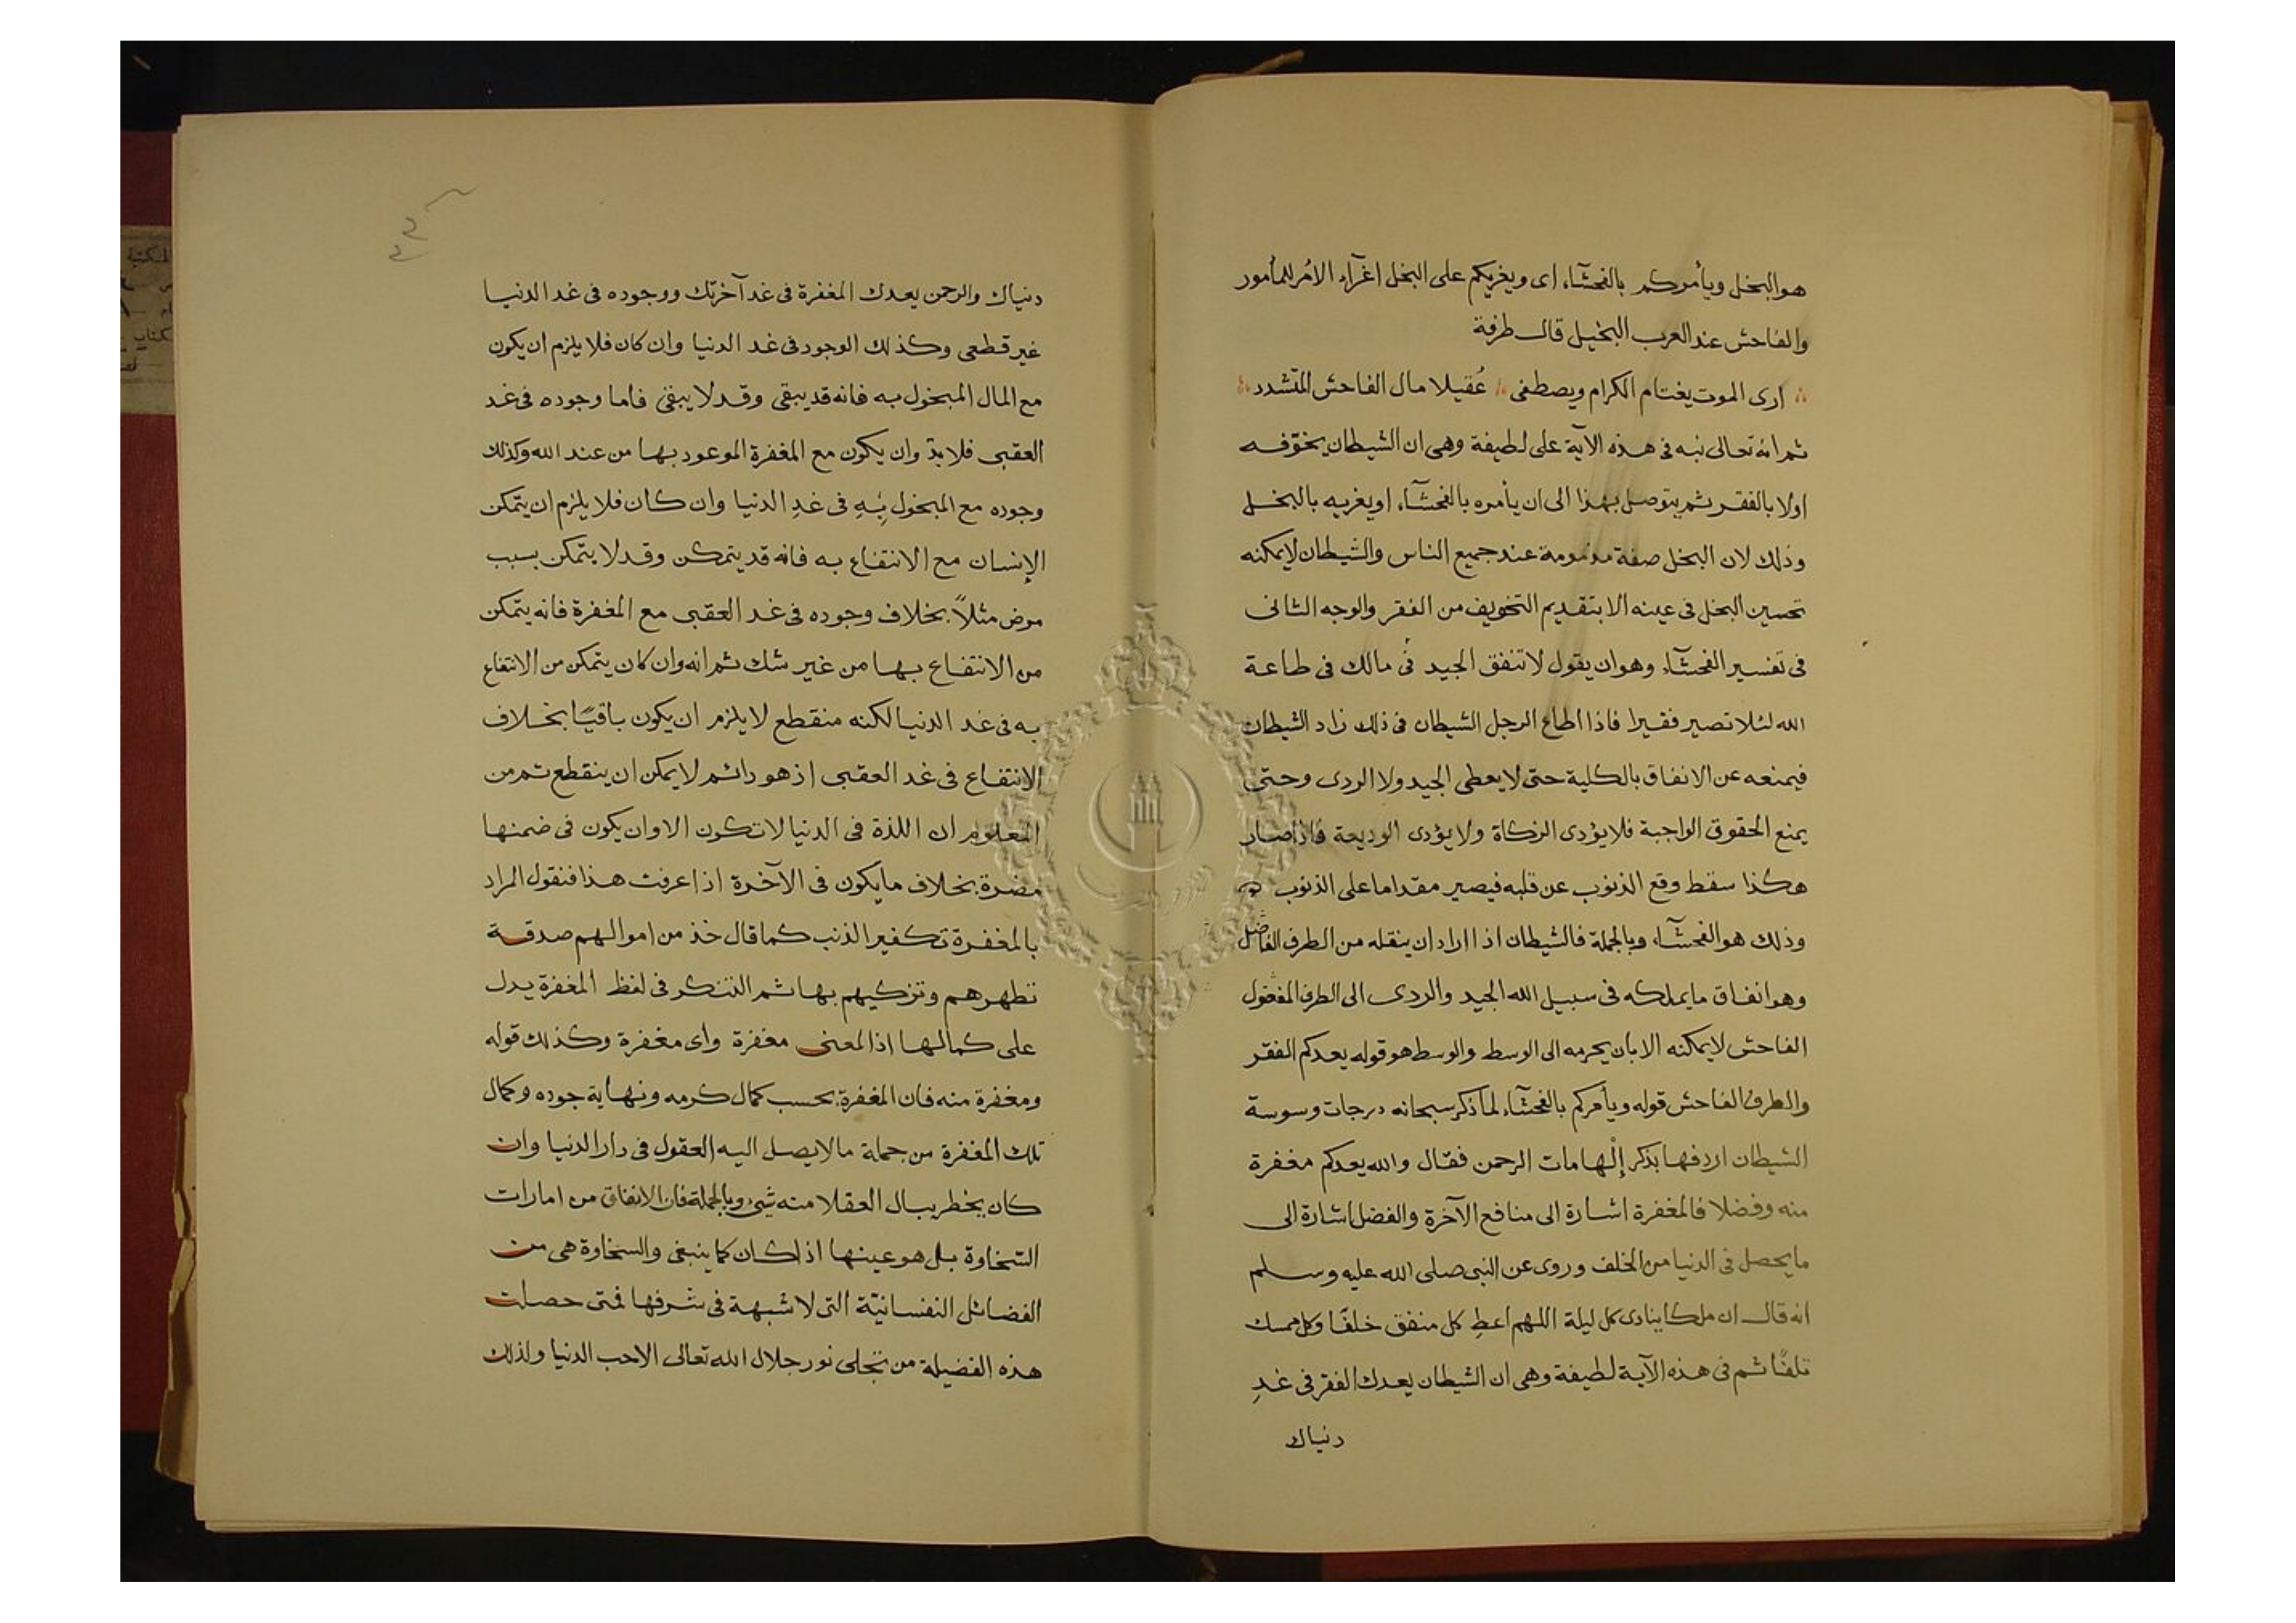 هو البخل ويأمركم بالفحشآء اى ويغريكم على البخل اغرآء الامر للمأمور
والفاحش عند العرب البخيل قال طرفة
ارى الموت يغتام الكرام ويصطفى عُقيلا مال الفاحش المتشدد
ثم انه تعالى نبه فى هذه الآية على لطيفة وهى ان الشيطان يخوّفه
اولا بالفقر ثم يتوصل بهذا الى ان يأمره بالفحشآء او يغريه بالبخل
وذلك لان البخل صفة مذمومة عند جميع الناس والشيطان لايمكنه
تحسين البخل فى عينه الا بتقديم التخويف من الفقر والوجه الثانى
فى تفسير الفحشآء وهو ان يقول لا تنفق الجيد فى مالك فى طاعة
الله لئلا تصير فقيرا فاذا اطاع الرجل الشيطان فى ذلك زاد الشيطان
فيمنعه عن الانفاق بالكلية حتى لايعطى الجيد ولا الردى وحتى
يمنع الحقوق الواجبة فلا يؤدى الزكاة ولا يؤدى الوديعة فاذا صار
هكذا سقط وقع الذنوب عن قلبه فيصير مقداما على الذنوب
وذلك هو الفحشآء وبالجملة فالشيطان اذا اراد ان ينقله من الطرف الفاضل
وهو انفاق مايملكه فى سبيل الله الجيد والردى الى الطرف المفضول
الفاحش لايمكنه الا بان يجرمه الى الوسط والوسط هو قوله يعدكم الفقر
والطرف الفاحش قوله ويأمركم بالفحشآء لما ذكر سبحانه درجات وسوسة
الشيطان اردفها بذكر إلْهامات الرحمن فقال والله يعدكم مغفرة
منه وفضلا فالمغفرة اشارة الى منافع الآخرة والفضل اشارة الى
مايحصل فى الدنيا من الخلف وروى عن النبى صلى الله عليه وسلم
انه قال ان ملكا ينادى كل ليلة اللهم اعطِ كل منفق خلفًا وكل ممسك
تلفًا ثم فى هذه الآية لطيفة وهى ان الشيطان يعدك الفقر فى غدِ
دنياك
دنياك والرحمن يعدك المغفرة فى غد آخرتك ووجوده فى غد الدنيا
غير قطعى وكذلك الوجود فى غد الدنيا وان كان فلا يلزم ان يكون
مع المال المبخول به فانه قد يبقى وقد لا يبقى فاما وجوده فى غد
العقبى فلا بدّ وان يكون مع المغفرة الموعود بها من عند الله وكذلك
وجوده مع المبخول بِهِ فى غدِ الدنيا وان كان فلا يلزم ان يتمكن
الإنسان مع الانتفاع به فانه قد يتمكن وقد لا يتمكن بسبب
مرض مثلاً بخلاف وجوده فى غد العقبى مع المغفرة فانه يتمكن
من الانتفاع بها من غير شك ثم انه وان كان يتمكن من الانتفاع
به فى غد الدنيا لكنه منقطع لا يلزم ان يكون باقيًا بخلاف
الانتفاع فى غد العقبى اذ هو دائم لا يمكن ان ينقطع ثم من
المعلوم ان اللذة فى الدنيا لاتكون الا وان يكون فى ضمنها
مضرة بخلاف مايكون فى الآخرة اذا عرفت هذا فنقول المراد
بالمغفرة تكفير الذنب كما قال خذ من اموالهم صدقة
تطهرهم وتزكيهم بها ثم التنكر فى لفظ المغفرة يدل
على كمالها اذ المعنى مغفرة واى مغفرة وكذلك قوله
ومغفرة منه فان المغفرة بحسب كمال كرمه ونهاية جوده وكمال
تلك المغفرة من جملة مالايصل اليه العقول فى دار الدنيا وان
كان يخطر ببال العقلا منه شىء وبالجملة فان الانفاق من امارات
السخاوة بل هو عينها اذا كان كما ينبغى والسخاوة هى من
الفضائل النفسانيّة التى لا شبهة فى شرفها فمتى حصلت
هذه الفضيلة من تجلى نور جلال الله تعالى الاحب الدنيا ولذلك